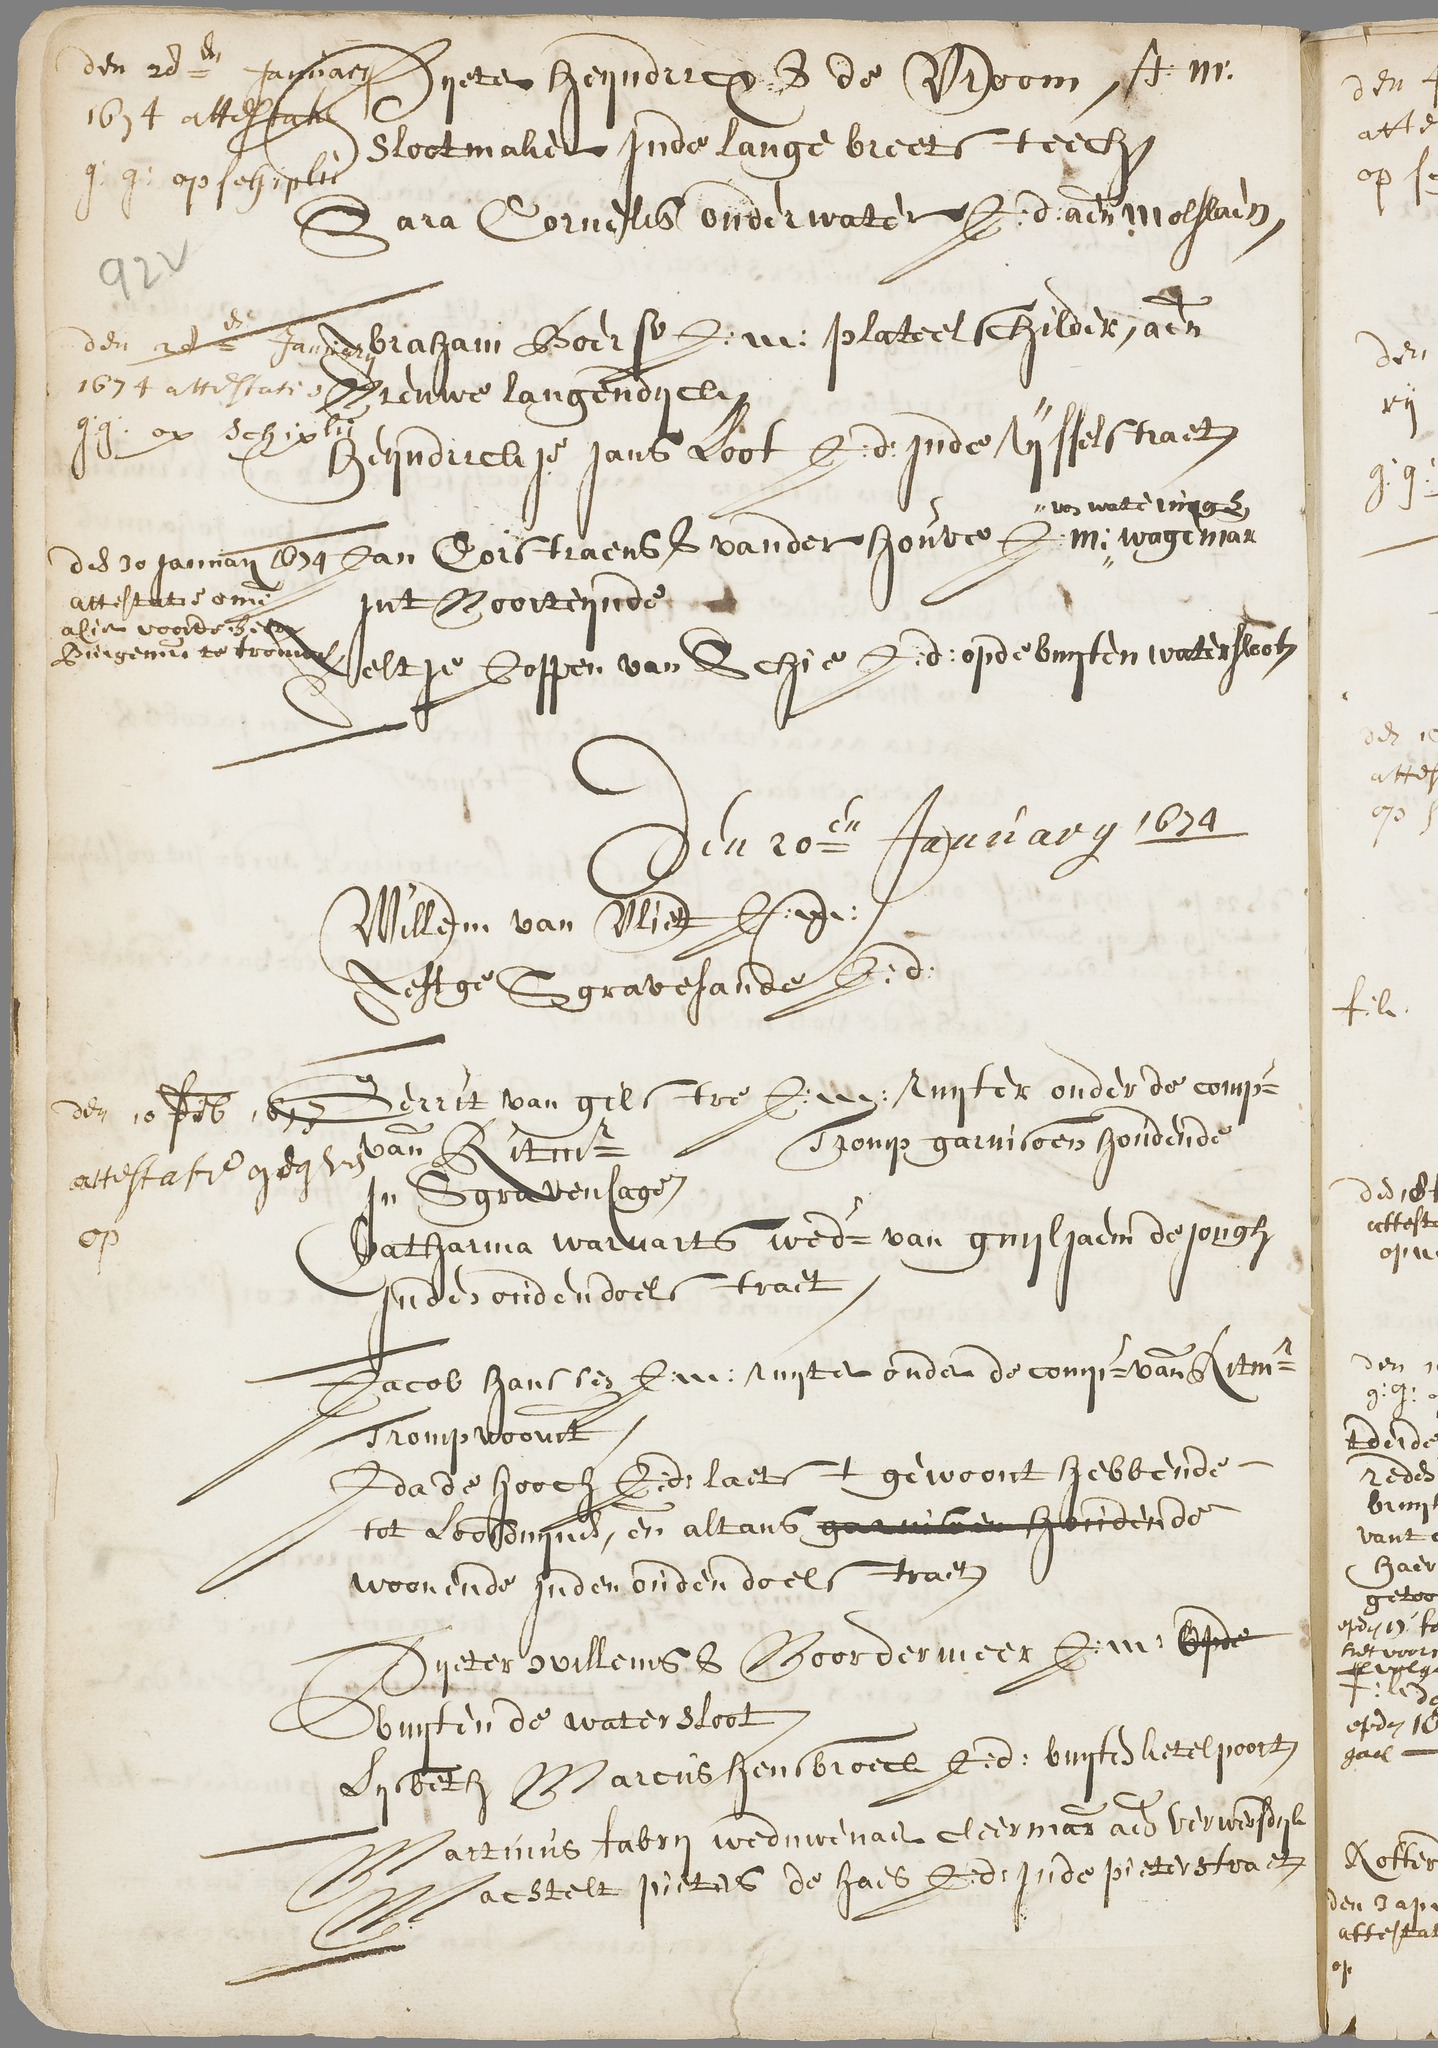 den 28en January
1674 attestatie
g: g: op schiplui
Pieter heijndricx S de Vroom, J: m:
Slootmaker Jnde lange breetsteech
Sara Cornelis onderwater J: d: aen Molslaen,
92v
den 28en January
1674 attestatie
gg: op Schiplui
Abraham Boerse J: m: plateelschilder, aen
Nieuwe langendijck
Heijndrickje Jans Loot J: d: Jnde Rijsselstraet
den 30 January 1674
attestatie om
alhier voor de heer
Burgemr te trouwen
van wateringe
Jan Corstiaensz vander houve J: m: wageman
Jnt Noorteijnde
Neeltje Joppen van Schie J: d: opde buijten watersloot
Den 20en January 1674
Willem van Vliet J: m:
Aeffge Sgravesande J: d:
den 10 feb 1675
attestatie gegeven
op
Gerrit van gelstre J: m: ruijter onder de compe
van Ritmr Tromp garnisoen houdende
Jn Sgravenhage
Catharina warnarts wede van guijljaem de jongh
Jnde oudendoelstraet
Jacob hanssen J: m: ruijter onder de compe van Ritmr
Tromp woont
Ida de hooch J: d: laetst gewoont hebbende
tot Loosduijnen, en altans garnisoen houdende
woonende Jnden ouden doelstraet
Pieter Willemsz Noordermeer J: m: Opde
buijten de watersloot
Lijsbeth Marcus hensbroeck J: d: buijten ketelpoort
Martinus fabrij weduwenaer cleermaker aen verwersdijk
Machtelt pieters de haes J: d: Jnde pieterstraet